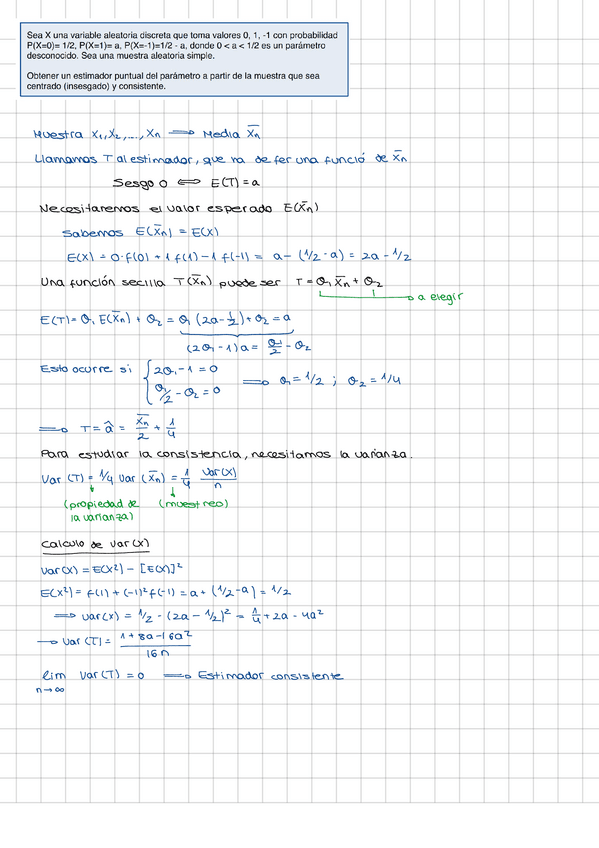 Sea X una variable aleatoria discreta que toma valores 0, 1, -1 con probabilidad
P(X=0)= 1/2, P(X=1)= a, P(X=-1)=1/2 - a, donde 0 < a < 1/2 es un parámetro
desconocido. Sea una muestra aleatoria simple.
Obtener un estimador puntual del parámetro a partir de la muestra que sea
centrado (insesgado) y consistente.
Muestra X₁, X₂, ..., Xn ⟹ Media X̄n
Llamamos T al estimador, que va de fer una funció de X̄n
Sesgo 0 ⟺ E(T) = a
Necesitaremos el valor esperado E(X̄n)
Sabemos E(X̄n) = E(X)
E(X) = 0·f(0) + 1 f(1) - 1 f(-1) = a - (1/2 - a) = 2a - 1/2
Una función secilla T(X̄n) puede ser T = θ₁ X̄n + θ₂
a elegir
E(T) = θ₁ E(X̄n) + θ₂ = θ₁ (2a - 1/2) + θ₂ = a
(2θ₁ - 1) a = θ₁/2 - θ₂
Esto ocurre si { 2θ₁ - 1 = 0
θ₁/2 - θ₂ = 0 ⟹ θ₁ = 1/2 ; θ₂ = 1/4
⟹ T = â = X̄n/2 + 1/4
Para estudiar la consistencia, necesitamos la varianza.
Var (T) = 1/4 Var (X̄n) = 1/4 Var(X)/n
(propiedad de la varianza) (muestreo)
Calculo de Var(X)
Var(X) = E(X²) - [E(X)]²
E(X²) = f(1) + (-1)² f(-1) = a + (1/2 - a) = 1/2
⟹ Var(X) = 1/2 - (2a - 1/2)² = 1/4 + 2a - 4a²
→ Var (T) = (1 + 8a - 16a²)/16n
lim n→∞ Var (T) = 0 ⟹ Estimador consistente